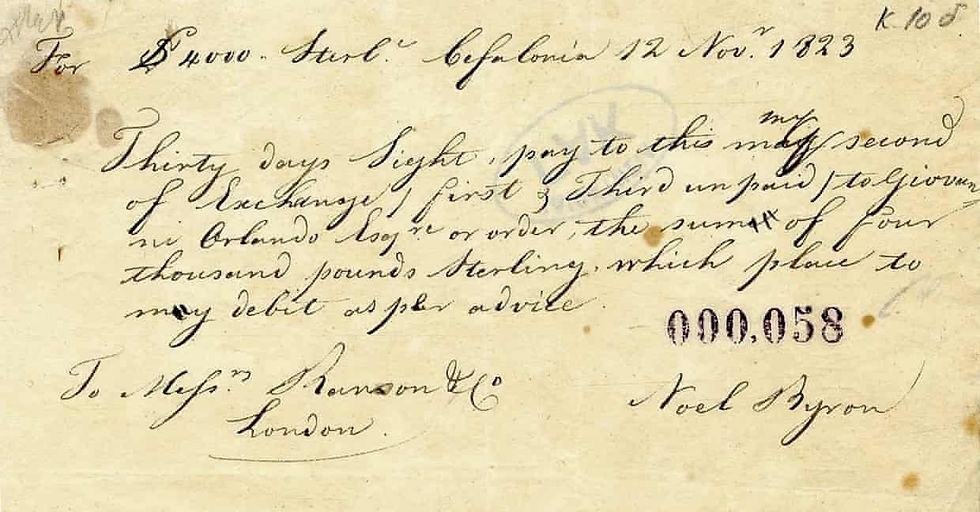 K 10 8
For £ 4000. Sterl.^c Cefalonia 12 Nov.^r 1823
my
Thirty days Sight, pay to this may second
of Exchange / first & Third unpaid / to Giovan=
ni Orlando Esq^re or order, the sum of four
thousand pounds Sterling, which place to
may debit as per advice.
000,058
To Mess.^rs Ranson & C^o
London.
Noel Byron